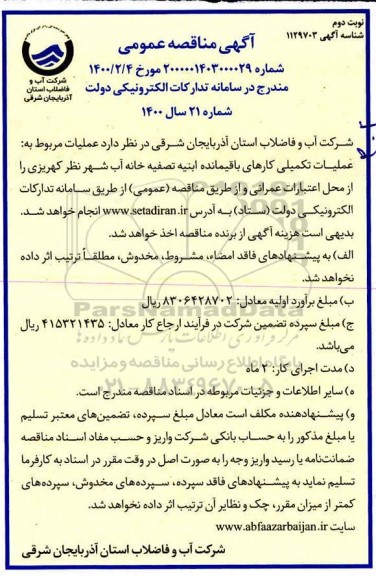 نوبت دوم
شناسه آگهی ۱۱۲۹۷۰۳
آگهی مناقصه عمومی
شماره ۲۰۰۰۰۰۱۴۰۳۰۰۰۰۲۹ مورخ ۱۴۰۰/۲/۴
مندرج در سامانه تدارکات الکترونیکی دولت
شماره ۲۱ سال ۱۴۰۰
شرکت آب و
فاضلاب استان
آذربایجان شرقی
شرکت آب و فاضلاب استان آذربایجان شرقی در نظر دارد عملیات مربوط به:
عملیات تکمیلی کارهای باقیمانده ابنیه تصفیه خانه آب شهر نظر کهریزی را
از محل اعتبارات عمرانی و از طریق مناقصه (عمومی) از طریق سامانه تدارکات
الکترونیکی دولت (ستاد) به آدرس www.setadiran.ir انجام خواهد شد.
بدیهی است هزینه آگهی از برنده مناقصه اخذ خواهد شد.
الف) به پیشنهادهای فاقد امضاء، مشروط، مخدوش، مطلقاً ترتیب اثر داده
نخواهد شد.
ب) مبلغ برآورد اولیه معادل: ۸۳۰۶۴۲۸۷۰۲ ریال
ج) مبلغ سپرده تضمین شرکت در فرآیند ارجاع کار معادل: ۴۱۵۳۲۱۴۳۵ ریال
می‌باشد.
د) مدت اجرای کار: ۳ ماه
ه) سایر اطلاعات و جزئیات مربوطه در اسناد مناقصه مندرج است.
و) پیشنهاددهنده مکلف است معادل مبلغ سپرده، تضمین‌های معتبر تسلیم
یا مبلغ مذکور را به حساب بانکی شرکت واریز و حسب مفاد اسناد مناقصه
ضمانت‌نامه یا رسید واریز وجه را به صورت اصل در وقت مقرر در اسناد به کارفرما
تسلیم نماید به پیشنهادهای فاقد سپرده، سپرده‌های مخدوش، سپرده‌های
کمتر از میزان مقرر، چک و نظایر آن ترتیب اثر داده نخواهد شد.
سایت www.abfaazarbaijan.ir
شرکت آب و فاضلاب استان آذربایجان شرقی
ParsNamadData
پایگاه اطلاع رسانی مناقصه و مزایده
۰۲۱-۸۸۳۴۹۶۷۰-۵